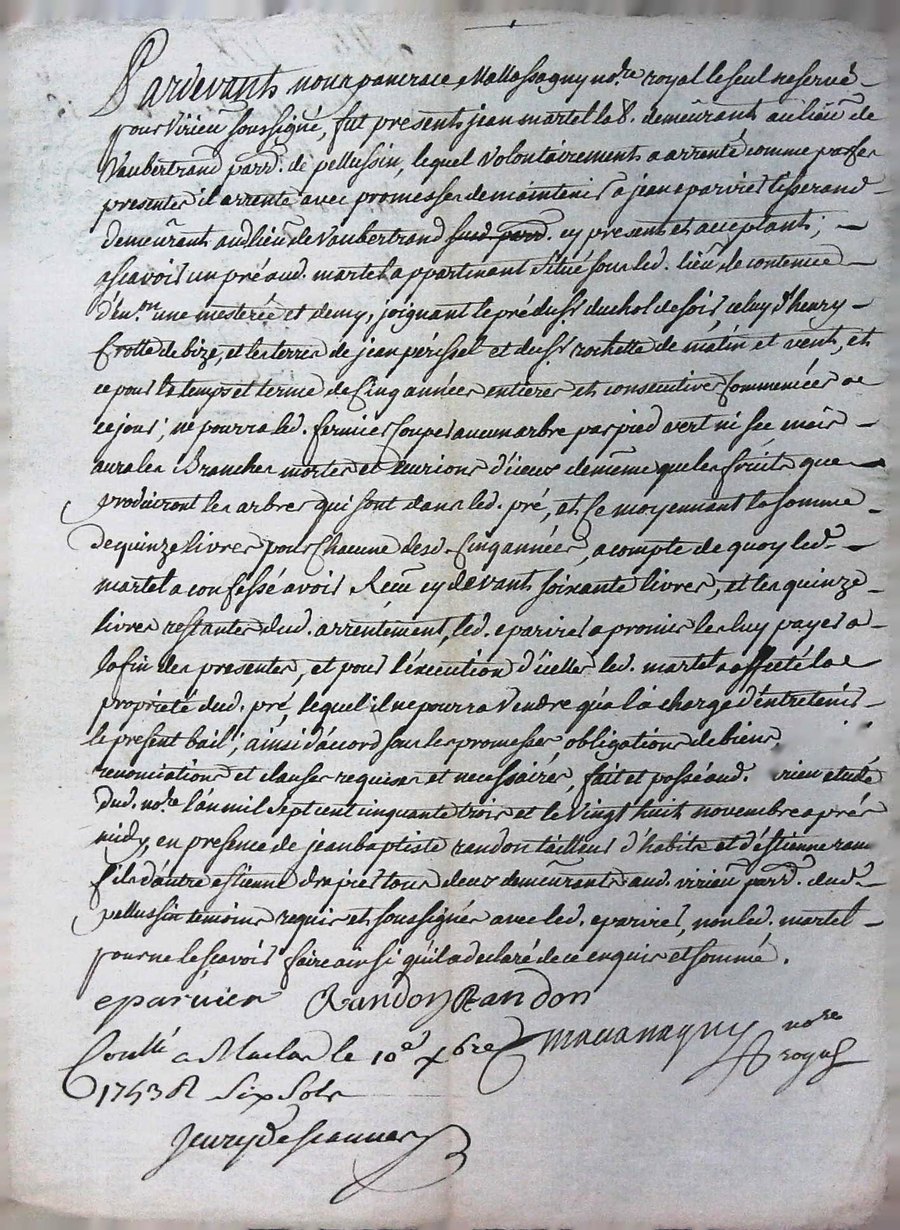 Pardevants nous pancrace Mallassagny no.re royal le seul reservé
pour virieu soussigné, fut presents jean martel lab. demeurant au lieu de
Vaubertrand parr. de pellussin, lequel volontairement a arrenté comme par ses
presentes il arrente avec promesses de maintenir a jean eparvier tisserand
demeurant aud lieu de Vaubertrand sud parr. cy present et acceptant,
ascavoir un pré aud. martel appartinant situé sous led. lieu de contence
d'en.on une mesterée et demy, joignant le pré du s.r duchol de soir, celuy d'henry
Crotte de bize, et les terres de jean périssel et du s.r rochette de matin et vent, et
ce pour le temps et terme de Cinq années entieres et consecutives Commencées ce
cejour, ne pourra led. fermier Couper aucun arbre par pied vert ni sec mais
aura les Branches mortes et d'iceux de mème que les fruits que
produiront les arbres qui sont dans led. pré, et Ce moyennant la somme
de quinze livres pour Chacune desd. Cinq années, a compte de quoy led.
martel a confessé avoir Receu cy devant soixante livres, et les quinze
livres restantes dud. arrentement, led. eparvier a promis les luy payer a
la fin des presentes, et pour l'éxecution d'icelles led. martel a affecté la
propriété dud. pré, lequel il ne pourra Vendre qu'a la charge d'entretenir
le present bail, ainsi d'accord sous les promesses obligations de biens,
renonciations et clauses requises et necessaires, fait et passé aud. virieu etude
dud. no.re l'an mil sept cent cinquante trois et le Vingt huit novembre aprés
midy, en presence de jean baptiste randon tailleur d'habits et d'éstienne ran
fils d'autre estienne drapier tous deux demeurants aud. virieu parr. dud.
pellussin temoins requis et soussignés avec led. eparvier, non led. martel
pour ne le sçavoir faire ainsi qu'il a declaré de ce enquis et sommé.
eparvier Randon Randon
Conllé a Maclas le 10e xbre Mallassagny no.re
1753 R six sols royal